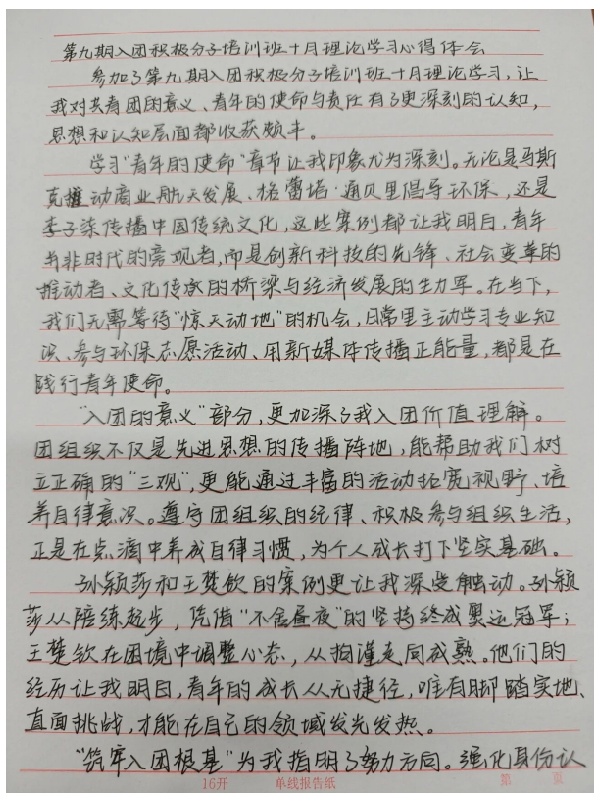 第九期入团积极分子培训班十月理论学习心得体会
参加了第九期入团积极分子培训班十月理论学习，让
我对共青团的意义、青年的使命与责任有了更深刻的认知，
思想和认知层面都收获颇丰。
学习“青年的使命”章节让我印象尤为深刻。无论是马斯
克推动商业航天发展、格蕾塔·通贝里倡导环保，还是
李子柒传播中国传统文化，这些案例都让我明白，青年
并非时代的旁观者，而是创新科技的先锋、社会变革的
推动者、文化传承的桥梁与经济发展的生力军。在当下，
我们无需等待“惊天动地”的机会，日常里主动学习专业知
识、参与环保志愿活动、用新媒体传播正能量，都是在
践行青年使命。
“入团的意义”部分，更加深了我入团价值理解。
团组织不仅是先进思想的传播阵地，能帮助我们树
立正确的“三观”，更能通过丰富的活动拓宽视野、培
养自律意识。遵守团组织的纪律、积极参与组织生活，
正是在点滴中养成自律习惯，为个人成长打下坚实基础。
孙颖莎和王楚钦的案例更让我深受触动。孙颖
莎从陪练起步，凭借“不舍昼夜”的坚持终成奥运冠军；
王楚钦在困境中调整心态，从拘谨走向成熟。他们的
经历让我明白，青年的成长从无捷径，唯有脚踏实地、
直面挑战，才能在自己的领域发光发热。
“筑牢入团根基”为我指明了努力方向。强化身份认
16开 单线报告纸 第 页